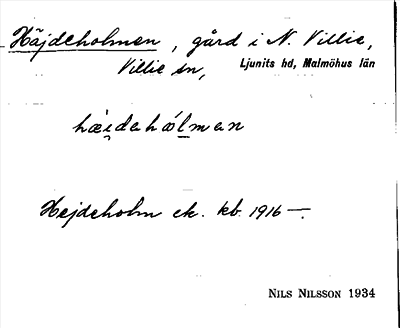 Häjdeholmen, gård i N. Villie,
Villie sn, Ljunits hd, Malmöhus län
hæi̯dahólman
Hejdeholm ek. kb. 1916 —.
NILS NILSSON 1934